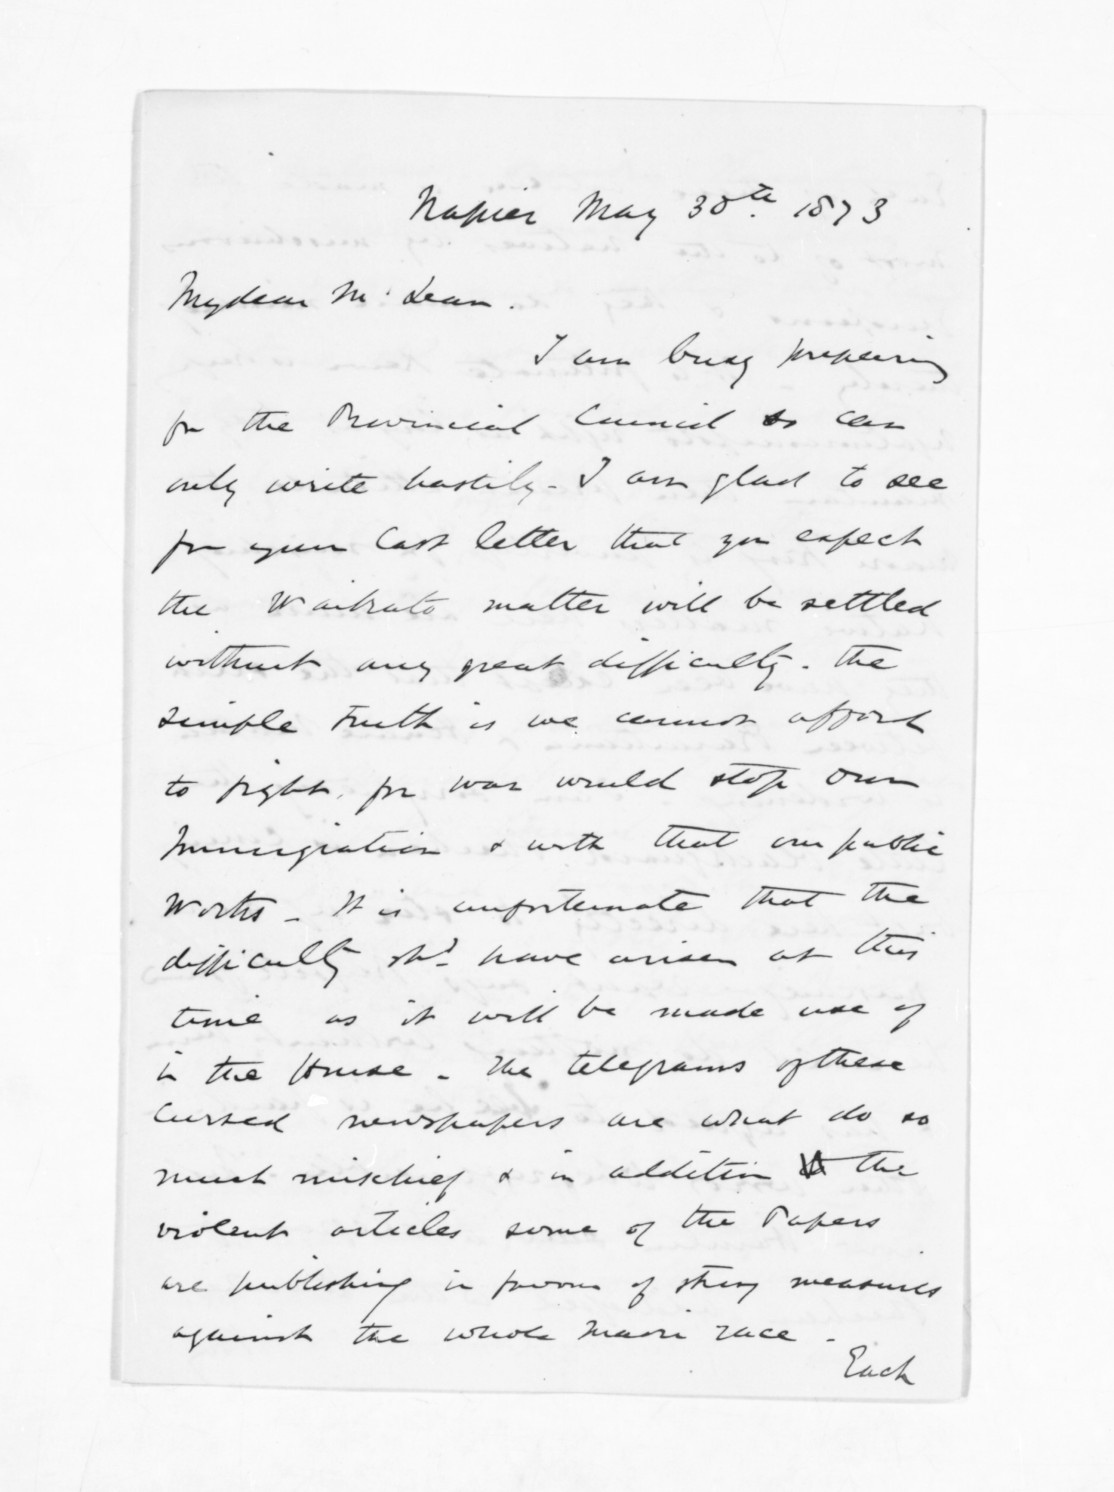 Napier May 30th. 1873
My dear McLean.
I am busy preparing
for the Provincial Council so can
only write hastily - I am glad to see
for your last letter that you expect
the Waikato matter will be settled
without any great difficulty. The
simple truth is we cannot afford
to fight, for war would stop our
Immigration & with that our public
Works - It is unfortunate that the
difficulty shd. have arisen at this
time as it will be made use of
in the House - The telegrams of these
cursed newspapers are what do so
much mischief & in addition the
violent articles some of the Papers
are publishing in favour of strong measures
against the whole Maori race -
Each